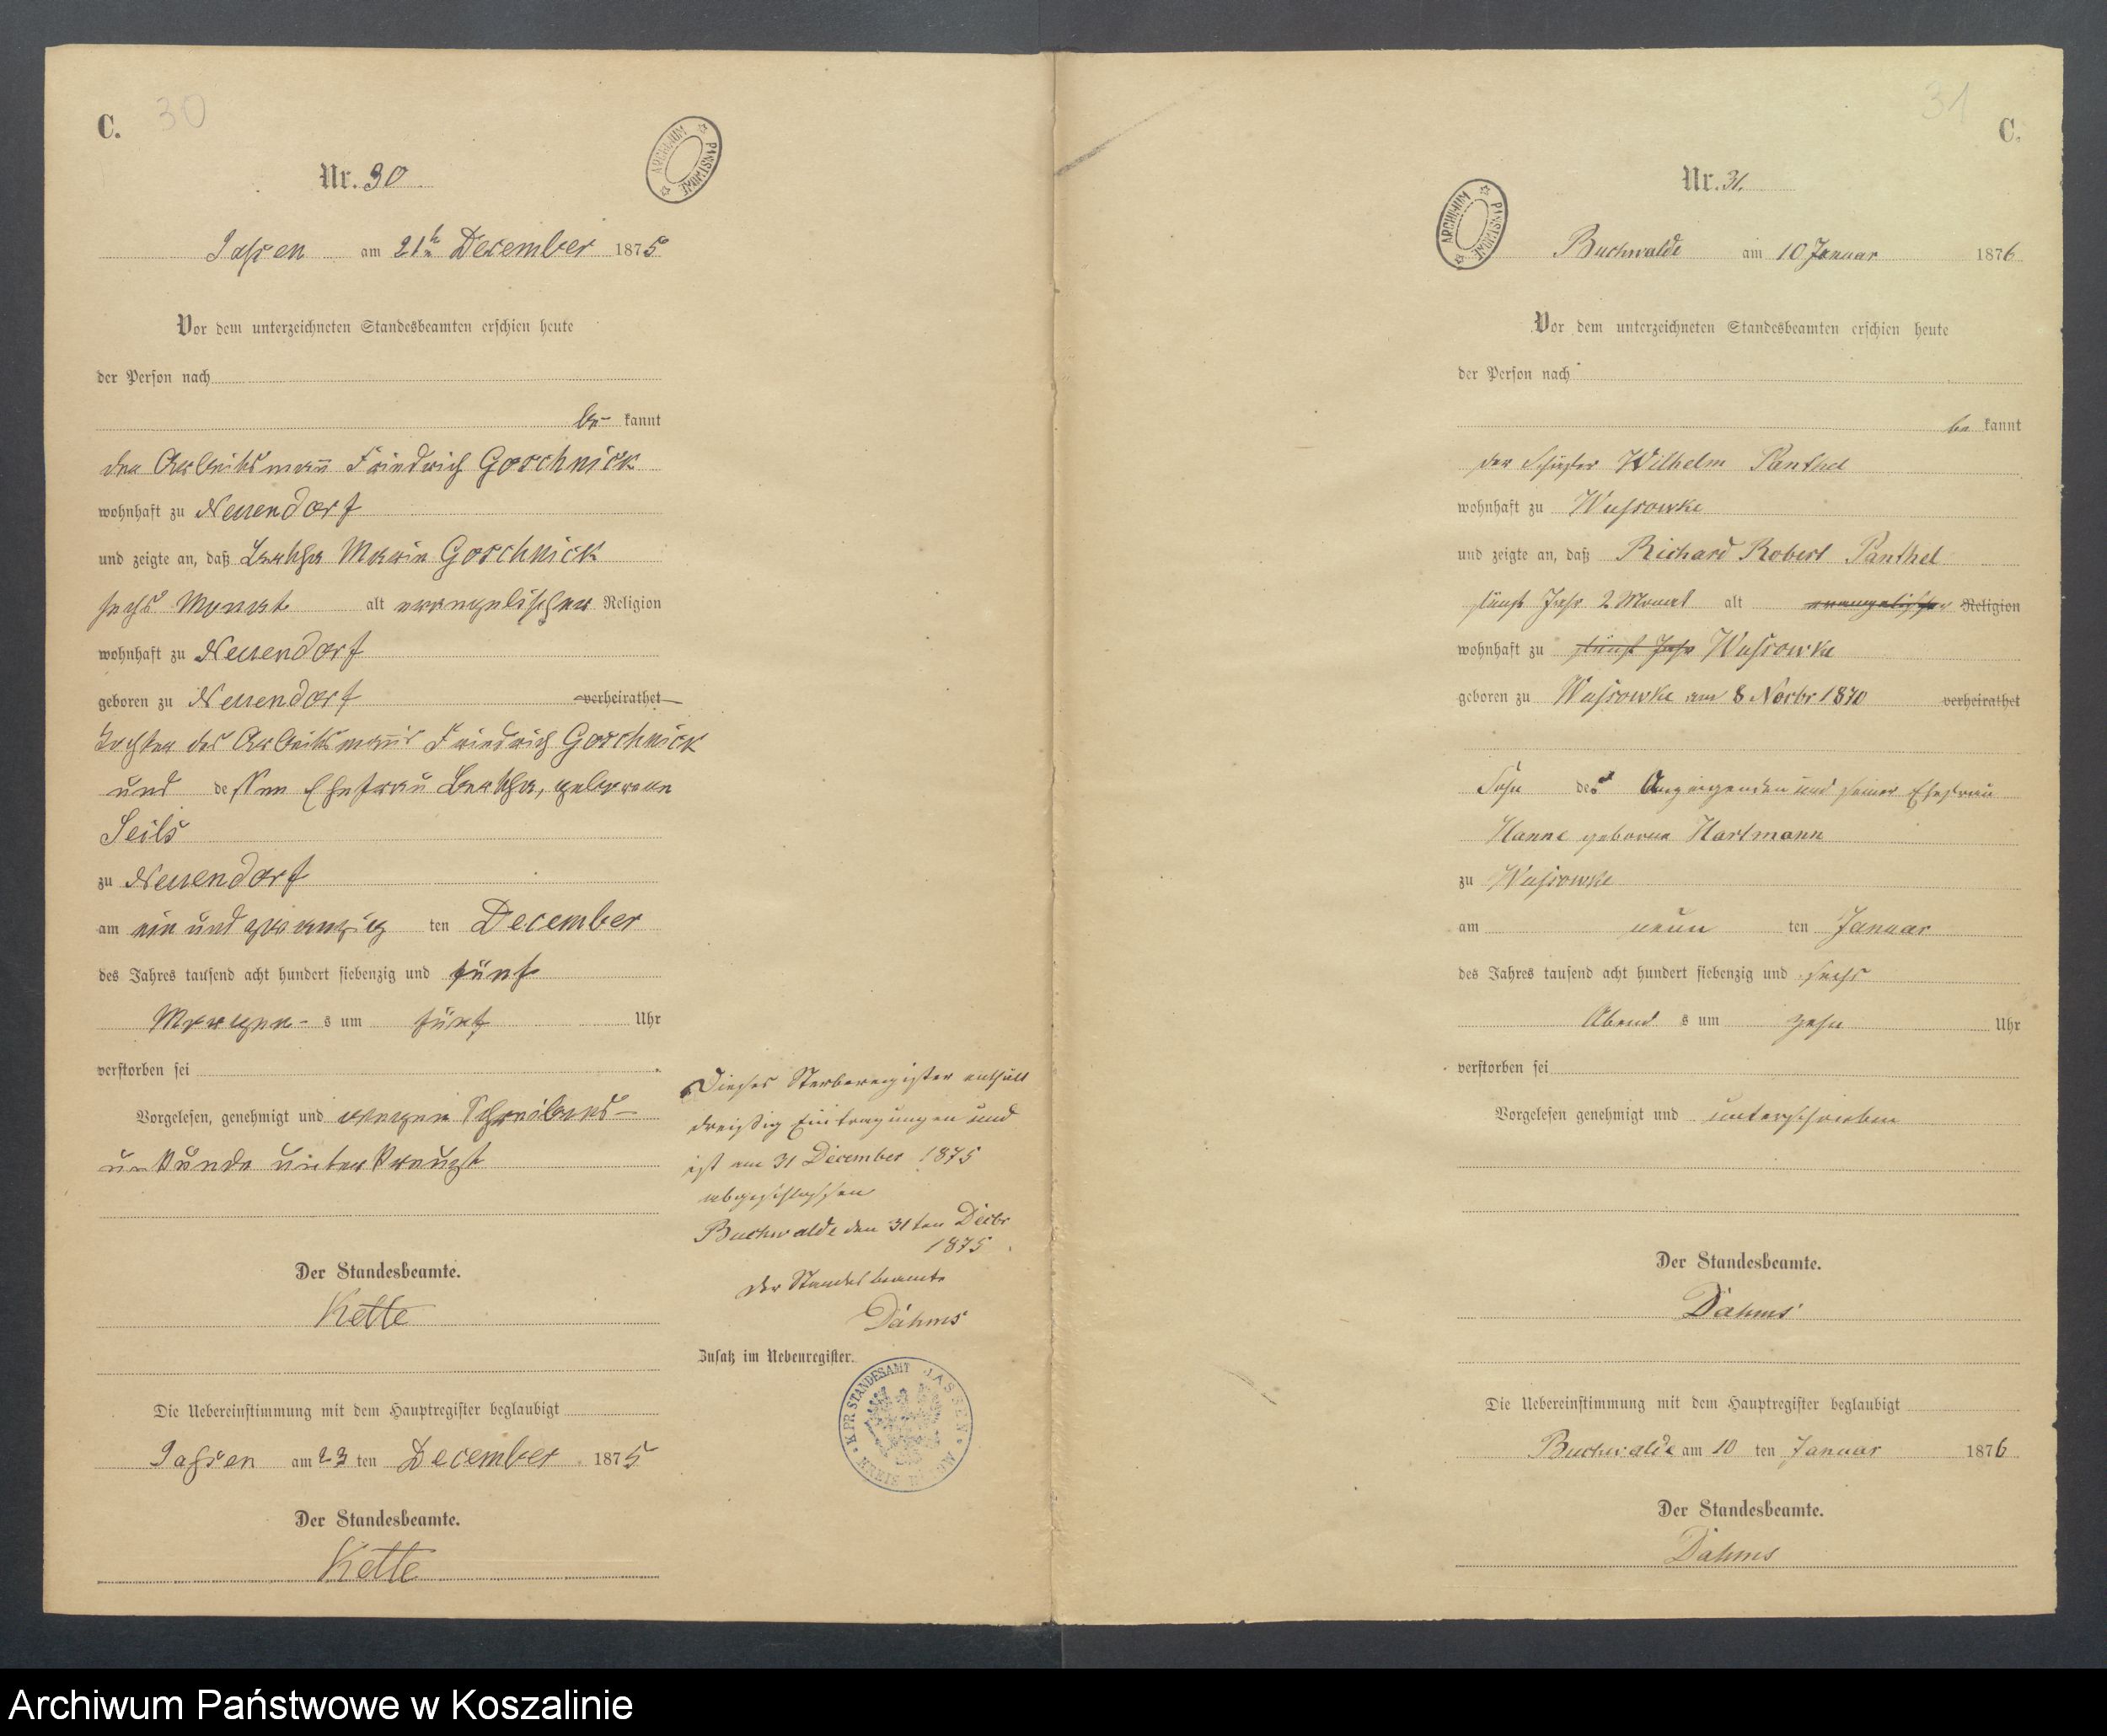 C. 30
Nr. 30
ARCHIWUM PAŃSTWOWE
Jassen am 21ten December 1875
Vor dem unterzeichneten Standesbeamten erschien heute
der Person nach
be kannt
der Arbeitsmann Friedrich Goschnick
wohnhaft zu Neuendorf
und zeigte an, daß Bertha Marie Goschnick
sechs Monat alt evangelischer Religion
wohnhaft zu Neuendorf
geboren zu Neuendorf verheirathet
Tochter des Arbeitsmanns Friedrich Goschnick
und dessen Ehefrau Bertha, geborene
Seils
zu Neuendorf
am ein und zwanzig ten December
des Jahres tausend acht hundert siebenzig und fünf
Morgen- s um fünf Uhr
verstorben sei
Vorgelesen, genehmigt und wegen Schreibens-
unkunde unterkreuzt
Der Standesbeamte.
Kette
Die Uebereinstimmung mit dem Hauptregister beglaubigt
Jassen am 23 ten December 1875
Der Standesbeamte.
Kette
Dieses Sterberegister enthält
dreißig Eintragungen und
ist am 31 December 1875
abgeschlossen
Buchwalde den 31ten Decbr
1875
Der Standesbeamte
Dahms
Zusatz im Nebenregister.
K. PR. STANDESAMT JASSEN KREIS BÜTOW
31
C.
Nr. 31.
ARCHIWUM PAŃSTWOWE
Buchwalde am 10 Januar 1876
Vor dem unterzeichneten Standesbeamten erschien heute
der Person nach
be kannt
der Wilhelm Panthel
wohnhaft zu Wussowke
und zeigte an, daß Richard Robert Panthel
fünf Jahr 2 Monat alt evangelischer Religion
wohnhaft zu fünf Jahr Wussowke
geboren zu Wussowke am 8 Novbr 1870 verheirathet
Sohn des Anzeigenden und seiner Ehefrau
Hanne geborne Hartmann
zu Wussowke
am neun ten Januar
des Jahres tausend acht hundert siebenzig und sechs
Abend s um zehn Uhr
verstorben sei
Vorgelesen genehmigt und unterschrieben
Der Standesbeamte.
Dahms
Die Uebereinstimmung mit dem Hauptregister beglaubigt
Buchwalde am 10 ten Januar 1876
Der Standesbeamte.
Dahms
Archiwum Państwowe w Koszalinie